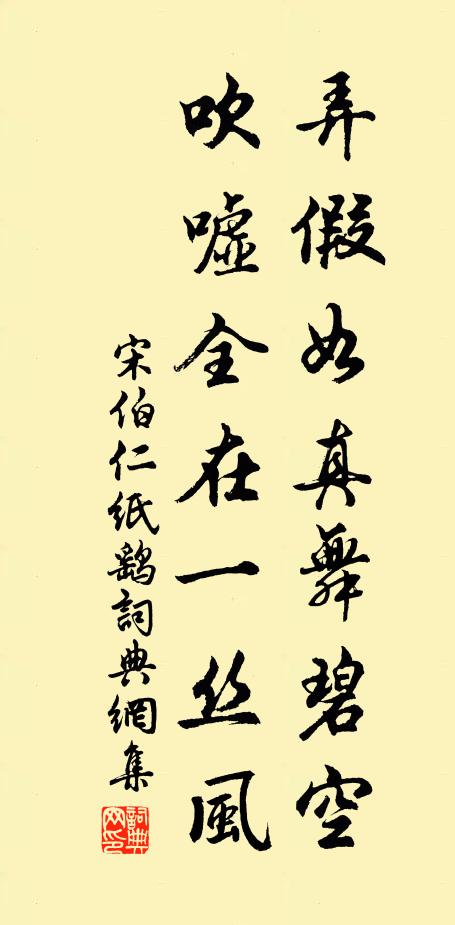 弄假如真舞碧空
吹噓全在一丝風
宋伯仁纸鷂詞典網集
詞典网印